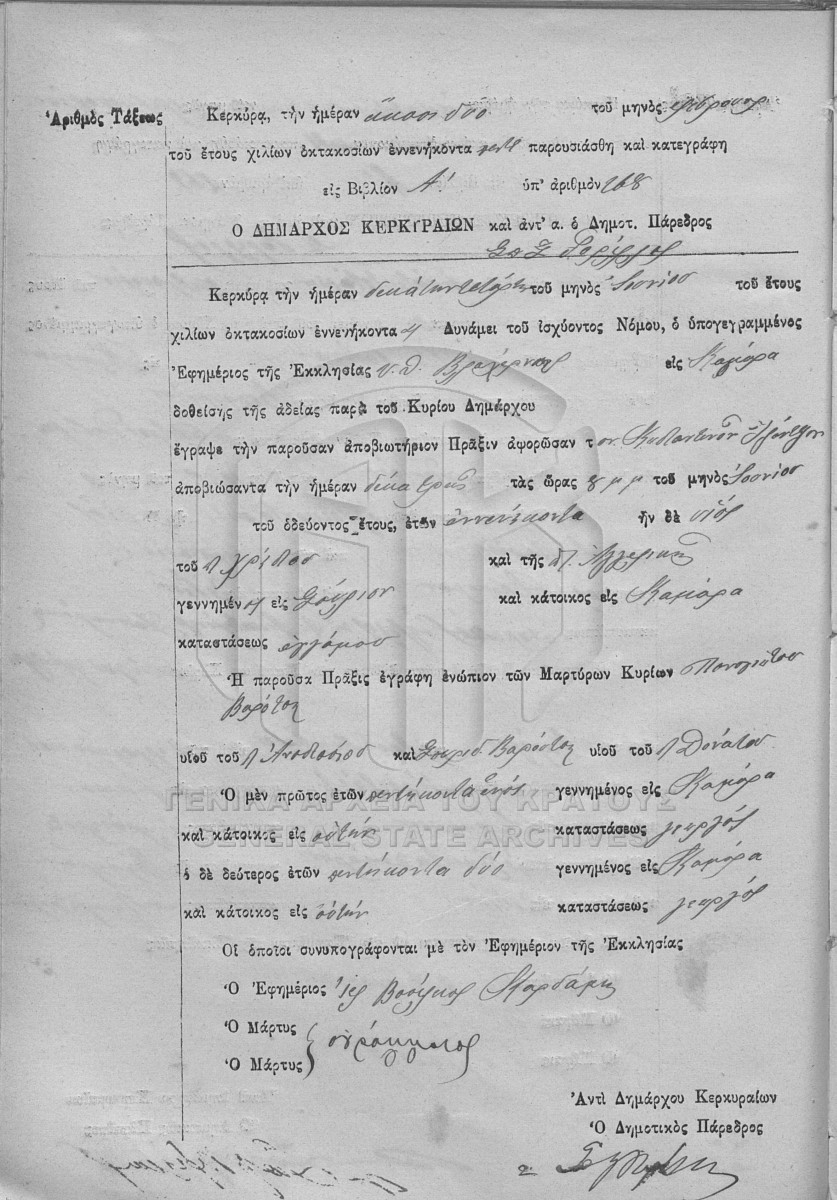 Ἀριθμὸς Τάξεως
Κερκύρᾳ, τὴν ἡμέραν εἴκοσι δύο τοῦ μηνὸς
τοῦ ἔτους χιλίων ὀκτακοσίων ἐννενήκοντα πέντε παρουσιάσθη καὶ κατεγράφη
εἰς Βιβλίον Α! ὑπ' ἀριθμὸν 268
Ο ΔΗΜΑΡΧΟΣ ΚΕΡΚΥΡΑΙΩΝ καὶ ἀντ' α. ὁ Δημοτ. Πάρεδρος
Κερκύρᾳ τὴν ἡμέραν δεκάτην τετάρτην τοῦ μηνὸς Ἰουνίου τοῦ ἔτους
χιλίων ὀκτακοσίων ἐννενήκοντα Δυνάμει τοῦ ἰσχύοντος Νόμου, ὁ ὑπογεγραμμένος
Ἐφημέριος τῆς Ἐκκλησίας υ. θ. Βλαχέρνας εἰς Καμάρα
δοθείσης τῆς ἀδείας παρὰ τοῦ Κυρίου Δημάρχου
ἔγραψε τὴν παροῦσαν ἀποβιωτήριον Πρᾶξιν ἀφορῶσαν τον Κωσταντῖνον
ἀποβιώσαντα τὴν ἡμέραν δέκα τρεῖς τὰς ὥρας 8 μ μ τοῦ μηνὸς Ἰουνίου
τοῦ ὁδεύοντος ἔτους, ἐτῶν ἐννενήκοντα ἦν δὲ υἱὸς
τοῦ π Χρίστου καὶ τῆς Ἀγγελικῆς
γεννημένος εἰς Σούλιον καὶ κάτοικος εἰς Καμάρα
καταστάσεως ἐγγάμου
Ἡ παροῦσα Πρᾶξις ἐγράφη ἐνώπιον τῶν Μαρτύρων Κυρίων Παναγιώτου
Βαρότση
υἱοῦ τοῦ π Ἀναστασίου καὶ Σπυρίδ. Βαρότση υἱοῦ τοῦ π Δονάτου
Ὁ μὲν πρῶτος ἐτῶν πεντήκοντα ἑνὸς γεννημένος εἰς Καμάρα
καὶ κάτοικος εἰς αὐτὴν καταστάσεως γεωργὸς
ὁ δὲ δεύτερος ἐτῶν πεντήκοντα δύο γεννημένος εἰς Καμάρα
καὶ κάτοικος εἰς αὐτὴν καταστάσεως γεωργὸς
Οἱ ὁποῖοι συνυπογράφονται μὲ τὸν Ἐφημέριον τῆς Ἐκκλησίας
Ὁ Ἐφημέριος Ἱερ Βασίλειος Καρδάμη
Ὁ Μάρτυς
ἀγράμματος
Ὁ Μάρτυς
Ἀντὶ Δημάρχου Κερκυραίων
Ὁ Δημοτικὸς Πάρεδρος
ΓΕΝΙΚΑ ΑΡΧΕΙΑ ΤΟΥ ΚΡΑΤΟΥΣ
GENERAL STATE ARCHIVES